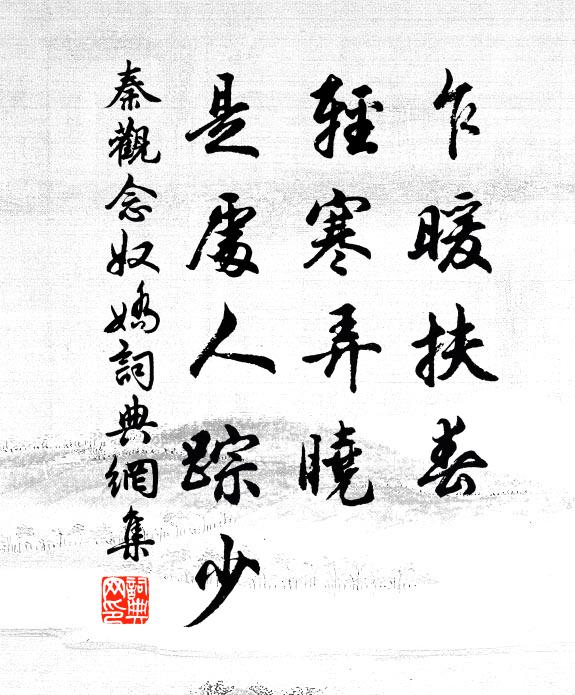 乍暖扶春
輕寒弄曉
是處人踪少
秦觀念奴嬌詞典網集
詞典
网印